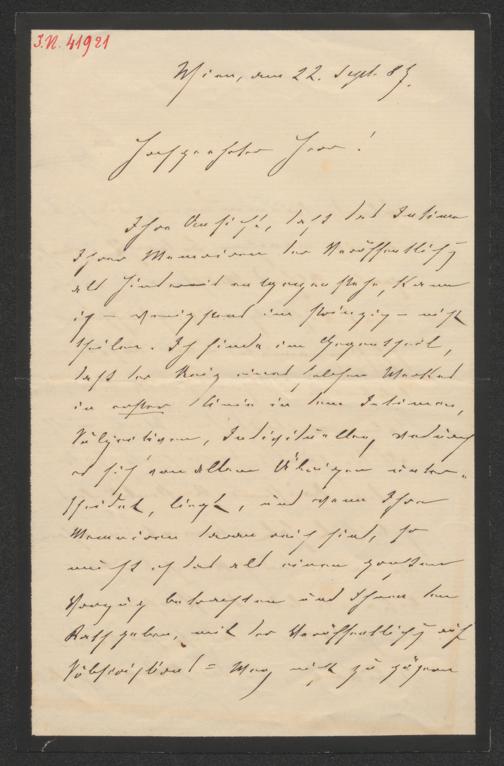 I.N. 41921
Wien, den 22. Sept. 87.
Hochgeehrter Herr!
Ihre Ansicht, daß das Intime
Ihrer Memoiren der Veröffentlichg
als Hinderniß entgegenstehe, kann
ich – wenigstens im Prinzip – nicht
theilen. Ich finde im Gegentheil,
daß der Reiz eines solchen Werkes
in erster Linie in dem Intimen,
Subjectiven, Individuellen, wodurch
es sich von allem Übrigen unter-
scheidet, liegt, und wenn Ihre
Memoiren daran reich sind, so
muß ich das als einen großen
Vorzug betrachten und Ihnen den
Rath geben, mit der Veröffentlichg auf
Subscriptions=Weg nicht zu zögern